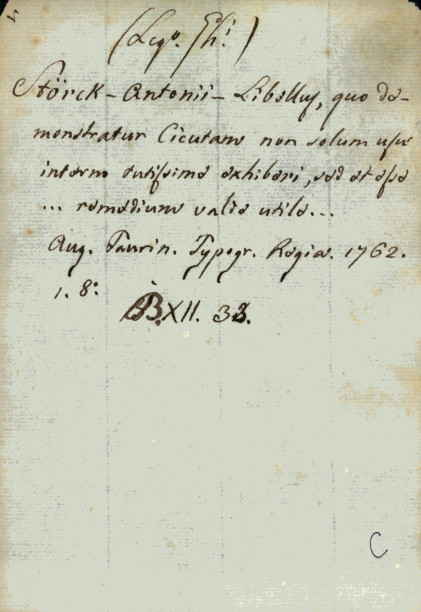 (Legº. Phⁱ.)
Störck - Antonii - Libellus, quo de-
monstratur Cicutam non solum usu
interno tutissime exhiberi, sed et esse
... remedium valde utile...
Aug. Taurin. Typogr. Regia. 1762.
1. 8º.
AB.XII. 33.
C